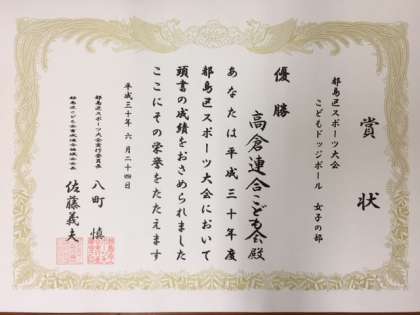 賞状
都島区スポーツ大会
こどもドッジボール 女子の部
優勝
高倉連合こども会殿
あなたは平成三十年度
都島区スポーツ大会において
頭書の成績をおさめられました
ここにその栄誉をたたえます
平成三十年 六月二十四日
都島区スポーツ大会実行委員長
八町 慎
佐藤義夫